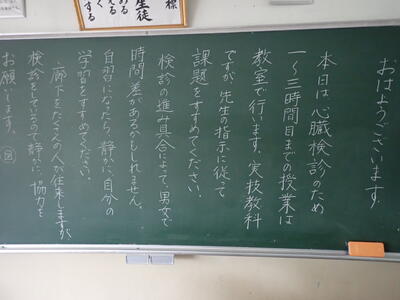 おはようございます。
本日は、心臓検診のため
一〜三時間目までの授業は
教室で行います。実技教科
ですが、先生の指示に従って
課題をすすめてください。
検診の進み具合によって、男女で
時間差があるかもしれません。
自習になったら、静かに、自分の
学習をすすめてください。
廊下をたくさんの人が往来しますが、
検診をしているので静かに、協力を
お願いします。
標
生徒
ある
える
する